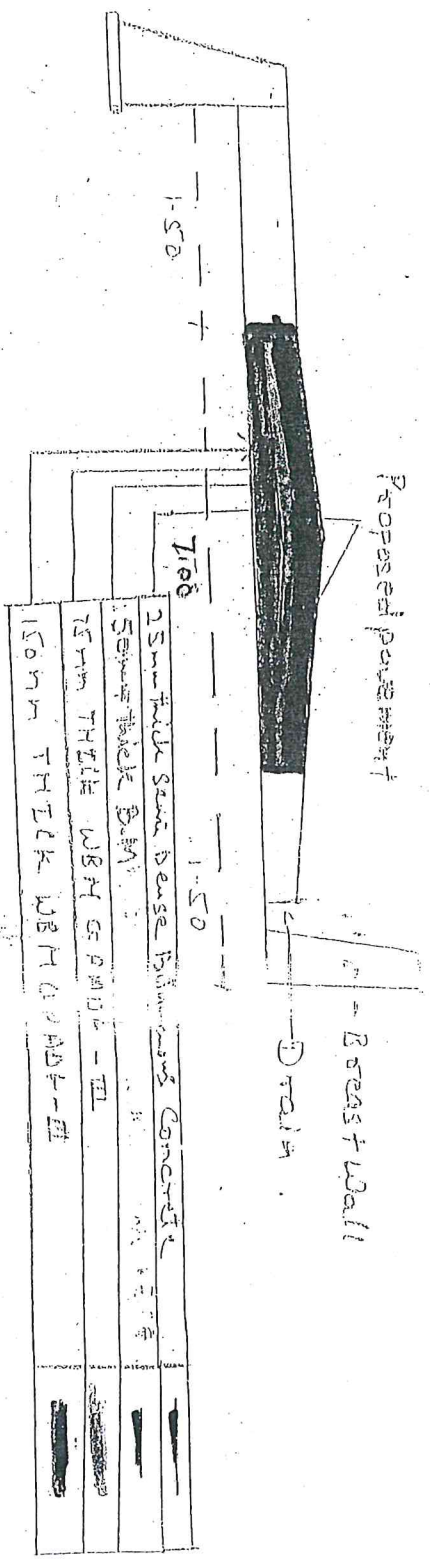 Proposed pavement
Breast Wall
Drain.
1.50
7.00
1.50
25mm thick Semi Dense Bituminous Concrete
50mm thick B.M
75mm THICK WBM GRADE-III
150mm THICK WBM GRADE-II